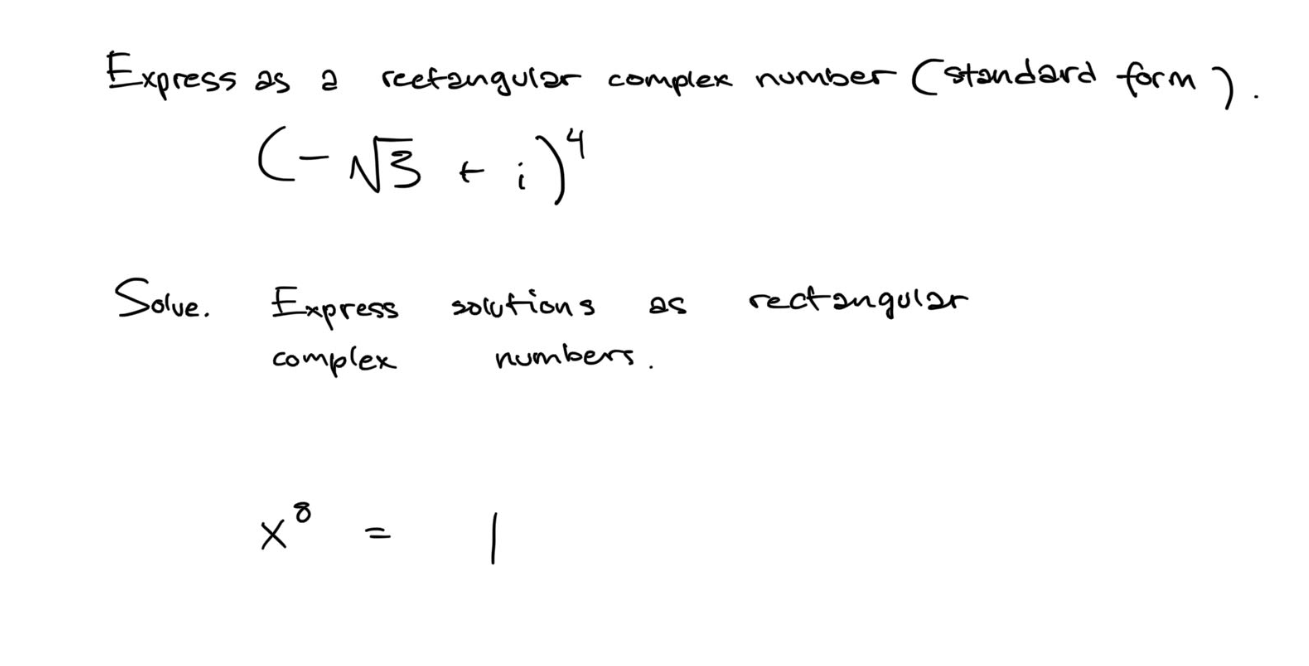 Express as a rectangular complex number (standard form).
(-√3 + i)⁴
Solve. Express solutions as rectangular
complex numbers.
x⁸ = 1